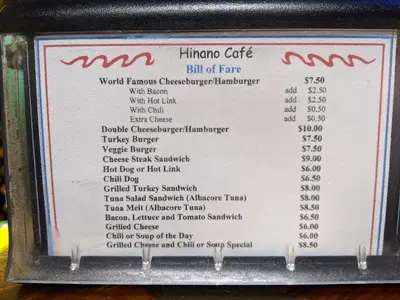 Hinano Café
Bill of Fare
World Famous Cheeseburger/Hamburger $7.50
With Bacon add $2.50
With Hot Link add $2.50
With Chili add $0.50
Extra Cheese add $0.50
Double Cheeseburger/Hamburger $10.00
Turkey Burger $7.50
Veggie Burger $7.50
Cheese Steak Sandwich $9.00
Hot Dog or Hot Link $6.00
Chili Dog $6.50
Grilled Turkey Sandwich $8.00
Tuna Salad Sandwich (Albacore Tuna) $8.00
Tuna Melt (Albacore Tuna) $8.50
Bacon, Lettuce and Tomato Sandwich $6.50
Grilled Cheese $6.00
Chili or Soup of the Day $6.00
Grilled Cheese and Chili or Soup Special $8.50